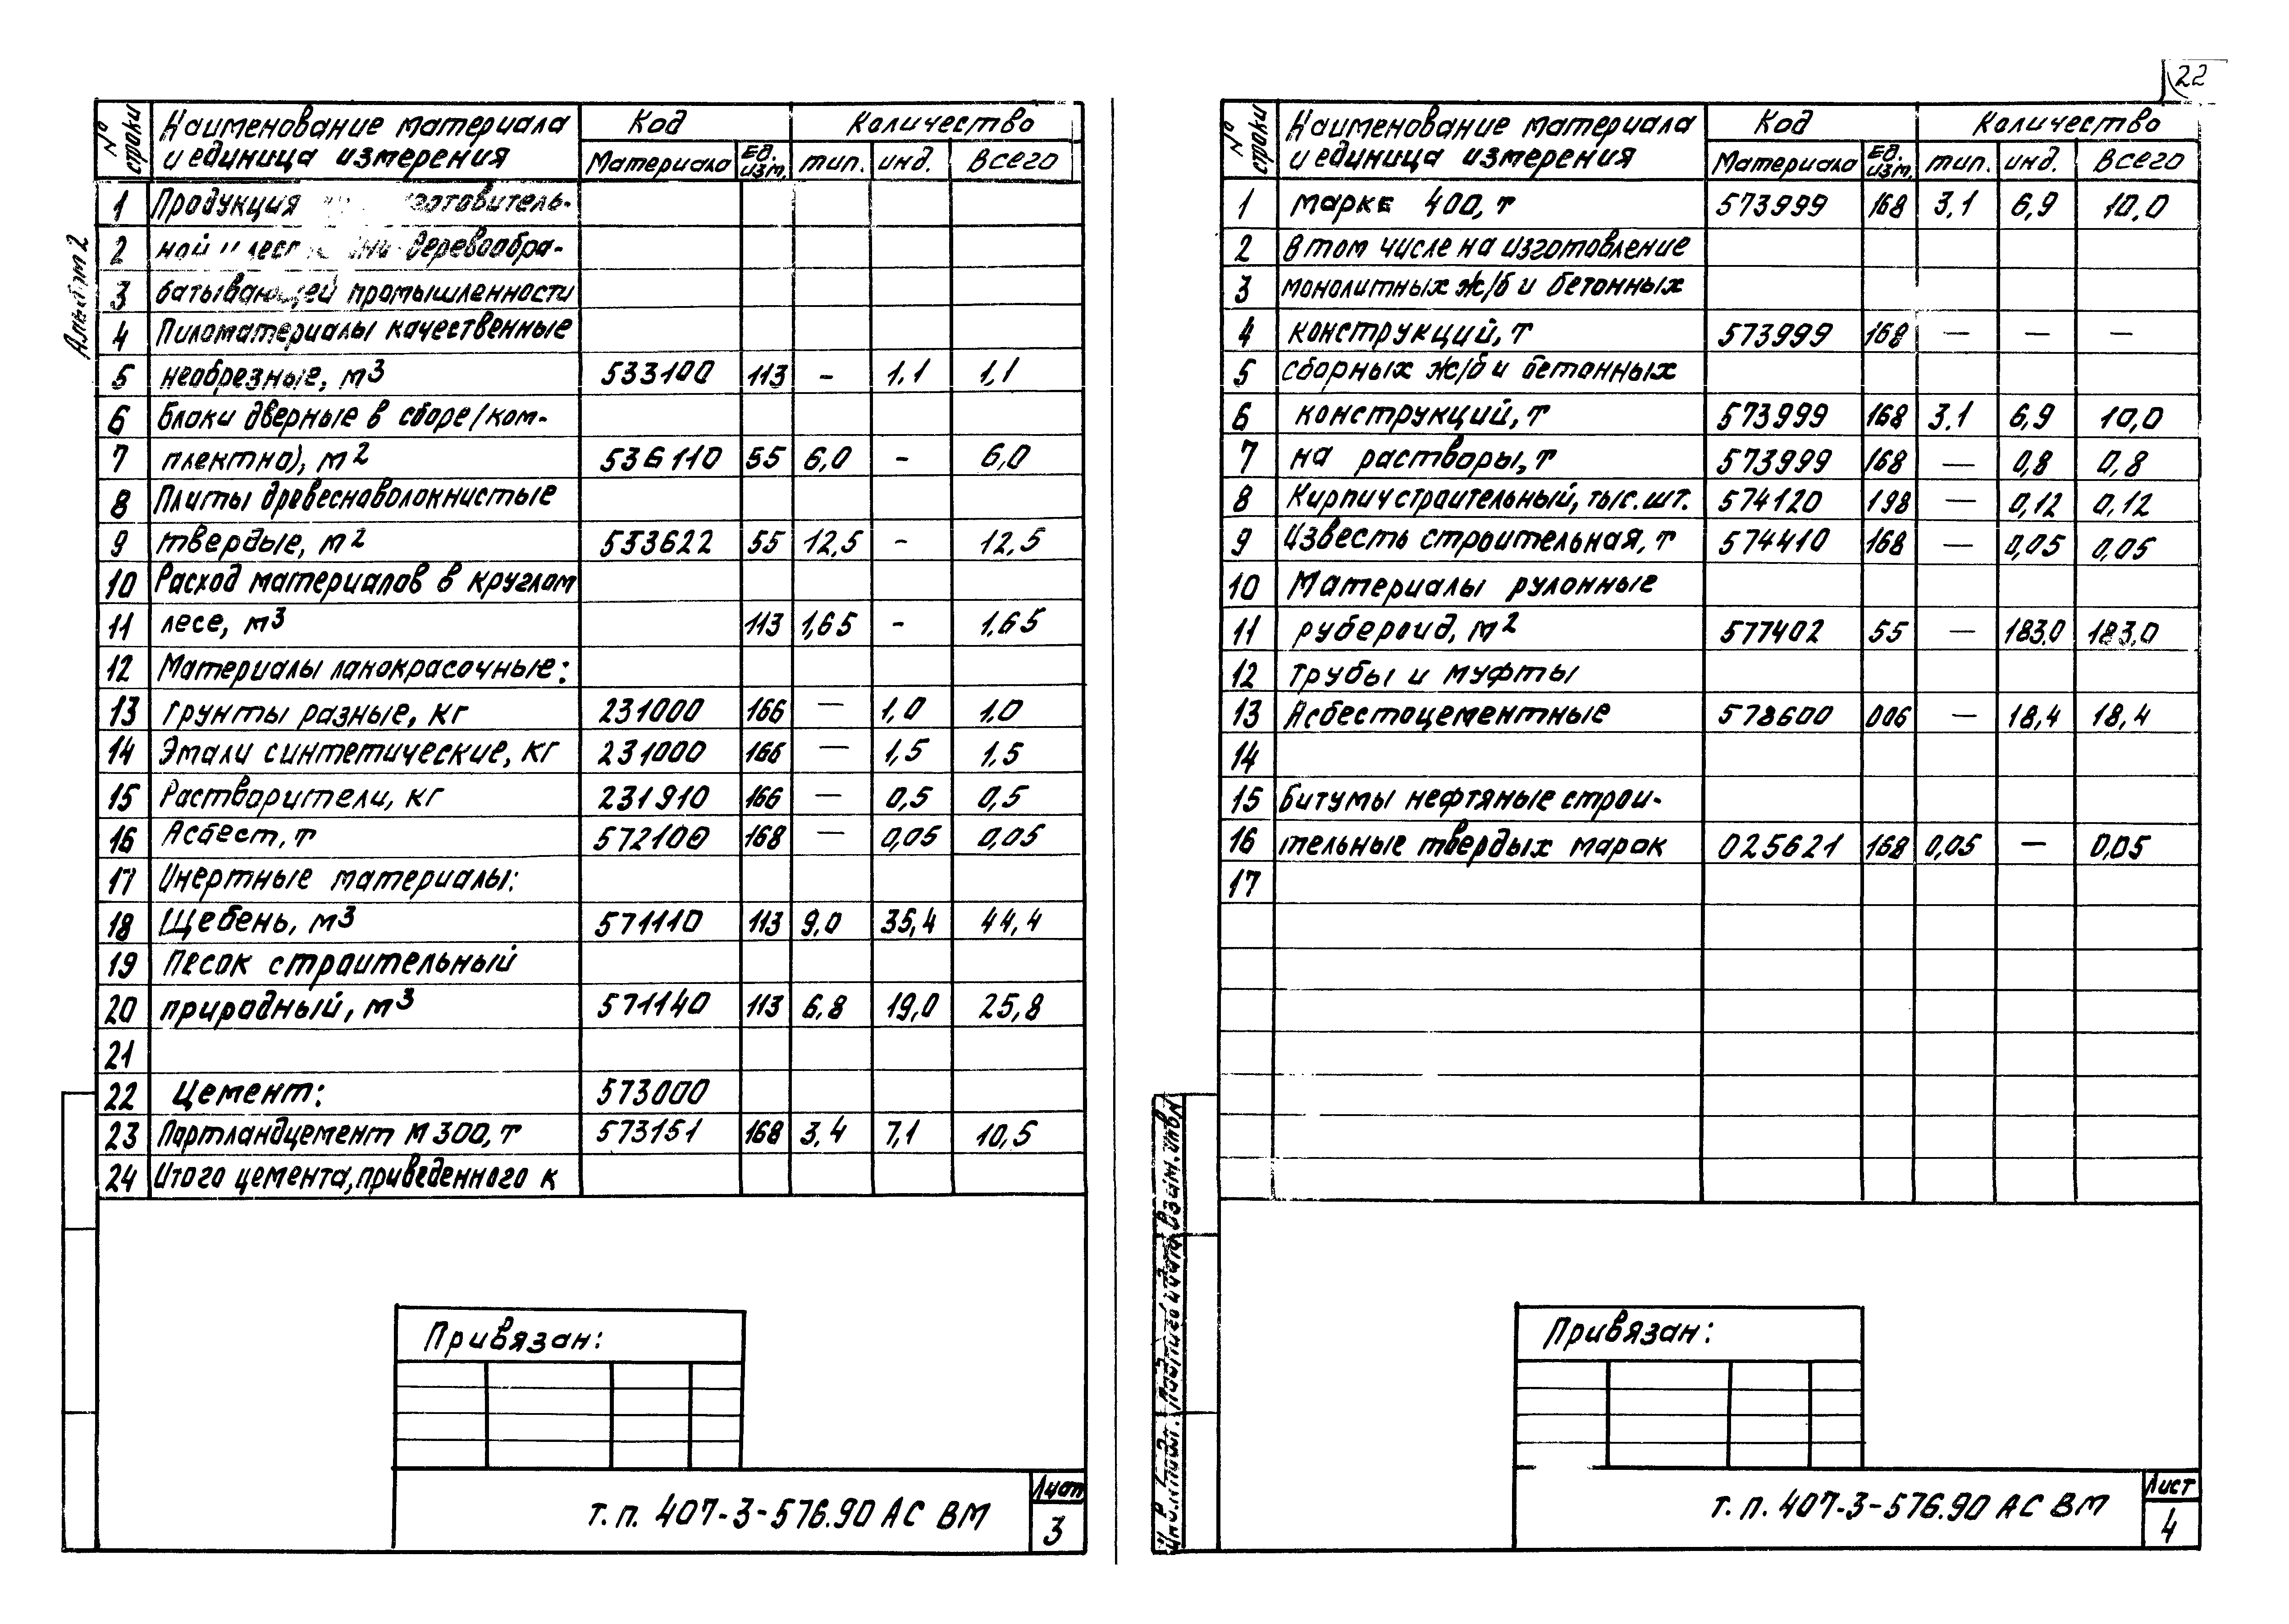 22
Альбом 2
№ строки | Наименование материала и единица измерения | Код | Количество
Материала | Ед. изм. | тип. | инд. | Всего
1 Продукция
2 ной деревообра-
3 батывающей промышленности
4 Пиломатериалы качественные
5 необрезные, м3 533100 113 - 1.1 1,1
6 Блоки дверные в сборе/ком-
7 плектно), м2 536110 55 6,0 - 6,0
8 Плиты древесноволокнистые
9 твердые, м2 553622 55 12,5 - 12,5
10 Расход материалов в круглом
11 лесе, м3 113 1,65 - 1,65
12 Материалы лакокрасочные:
13 грунты разные, кг 231000 166 — 1,0 1,0
14 Эмали синтетические, кг 231000 166 — 1,5 1,5
15 Растворители, кг 231910 166 — 0,5 0,5
16 Асбест, т 572100 168 — 0,05 0,05
17 Инертные материалы:
18 Щебень, м3 571110 113 9.0 35,4 44,4
19 Песок строительный
20 природный, м3 571140 113 6,8 19,0 25,8
21
22 Цемент: 573000
23 Портландцемент М 300, т 573151 168 3,4 7,1 10,5
24 Итого цемента, приведенного к
Привязан:
т. п. 407-3-576.90 АС ВМ
Лист
3
№ строки | Наименование материала и единица измерения | Код | Количество
Материала | Ед. изм. | тип. | инд. | Всего
1 марке 400, т 573999 168 3,1 6,9 10,0
2 В том числе на изготовление
3 монолитных ж/б и бетонных
4 конструкций, т 573999 168 — — —
5 сборных ж/б и бетонных
6 конструкций, т 573999 168 3.1 6,9 10,0
7 на растворы, т 573999 168 — 0,8 0,8
8 Кирпич строительный, тыс. шт. 574120 198 — 0,12 0,12
9 Известь строительная, т 574410 168 — 0,05 0,05
10 Материалы рулонные
11 рубероид, м2 577402 55 — 183,0 183,0
12 Трубы и муфты
13 Асбестоцементные 578600 006 — 18,4 18,4
14
15 Битумы нефтяные строи-
16 тельные твердых марок 025621 168 0,05 — 0,05
17
Инв. № подл. Подпись и дата Взам. инв. №
Привязан:
т. п. 407-3-576.90 АС ВМ
Лист
4